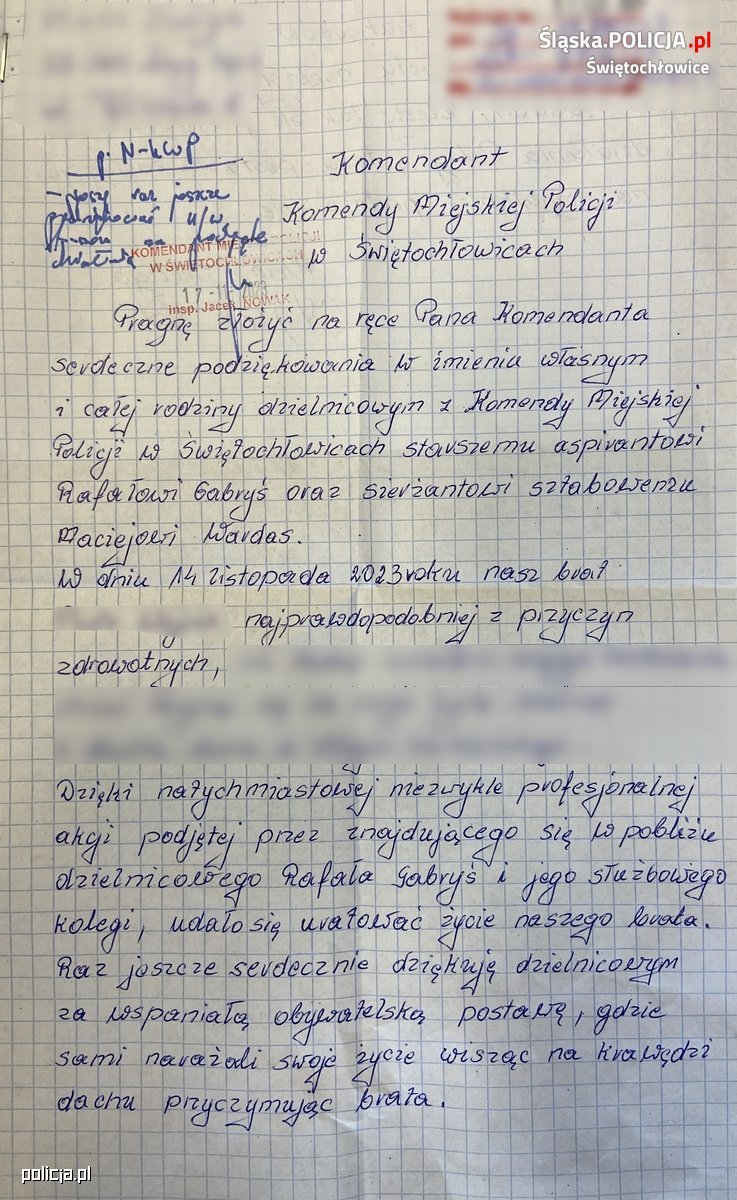 Śląska.POLICJA.pl
Świętochłowice
p. N-kwp
- proszę raz jeszcze
podziękować u/w
za postawę
KOMENDANT MIEJSKI POLICJI
W ŚWIĘTOCHŁOWICACH
insp. Jacek NOWAK
Komendant
Komendy Miejskiej Policji
w Świętochłowicach
Pragnę złożyć na ręce Pana Komendanta
serdeczne podziękowania w imieniu własnym
i całej rodziny dzielnicowym z Komendy Miejskiej
Policji w Świętochłowicach starszemu aspirantowi
Rafałowi Gabryś oraz sierżantowi sztabowemu
Maciejowi Wardas.
W dniu 14 listopada 2023 roku nasz brat
najprawdopodobniej z przyczyn
zdrowotnych,
Dzięki natychmiastowej niezwykle profesjonalnej
akcji podjętej przez znajdującego się w pobliżu
dzielnicowego Rafała Gabryś i jego służbowego
kolegi, udało się uratować życie naszego brata.
Raz jeszcze serdecznie dziękuję dzielnicowym
za wspaniałą obywatelską postawę, gdzie
sami narażali swoje życie wisząc na krawędzi
dachu przyczymując brata.
policja.pl